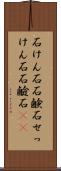 石けん石石鹸石せっ
けん石石鹼石××